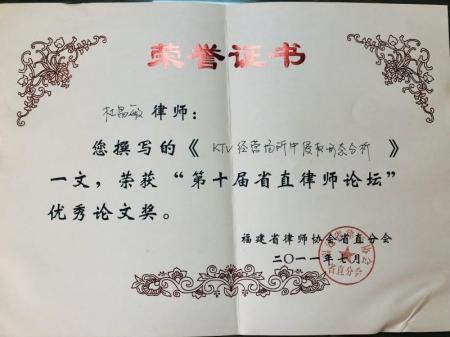 荣誉证书
杜昌敏 律师：
您撰写的《KTV经营场所中侵权形态分析》
一文，荣获“第十届省直律师论坛”
优秀论文奖。
福建省律师协会省直分会
二〇一一年七月
省直分会